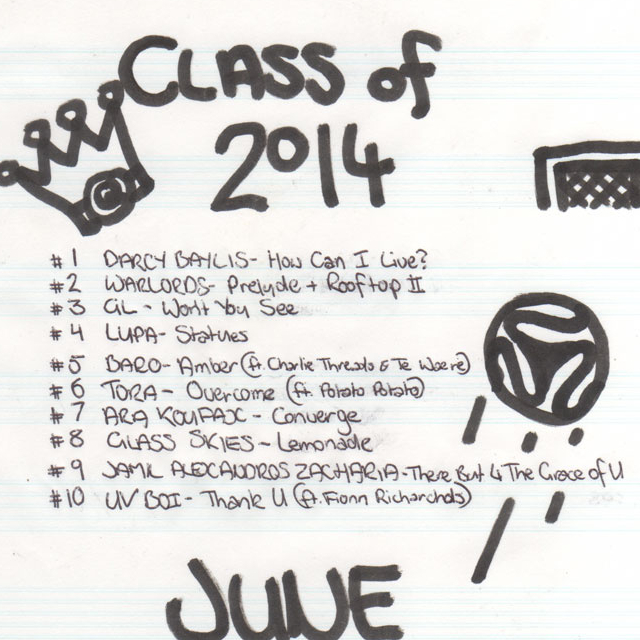 CLASS of
2014
#1 DARCY BAYLIS- How Can I Live?
#2 WARLORDS- Prelude + Rooftop II
#3 GL - Won't You See
#4 LUPA- Statues
#5 BARO- Amber (ft. Charlie Threads & Te Waere)
#6 TORA- Overcome (ft. Potato Potato)
#7 ARA KOUFAX - Converge
#8 GLASS SKIES- Lemonade
#9 JAMIL ALEXANDROS ZACHARIA-There But 4 The Grace of U
#10 UV BOI- Thank U (ft. Fionn Richards)
JUNE